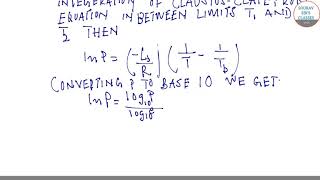 INTEGERATION OF CLAUSIUS-CLAPEYRON
EQUATION IN BETWEEN LIMITS T₁ AND
T/2 THEN
ln P = (-Ls/R) (1/T - 1/Tb)
CONVERTING P TO BASE 10 WE GET.
ln P = log₁₀P / log₁₀e
SOURAV
SIR'S
CLASSES